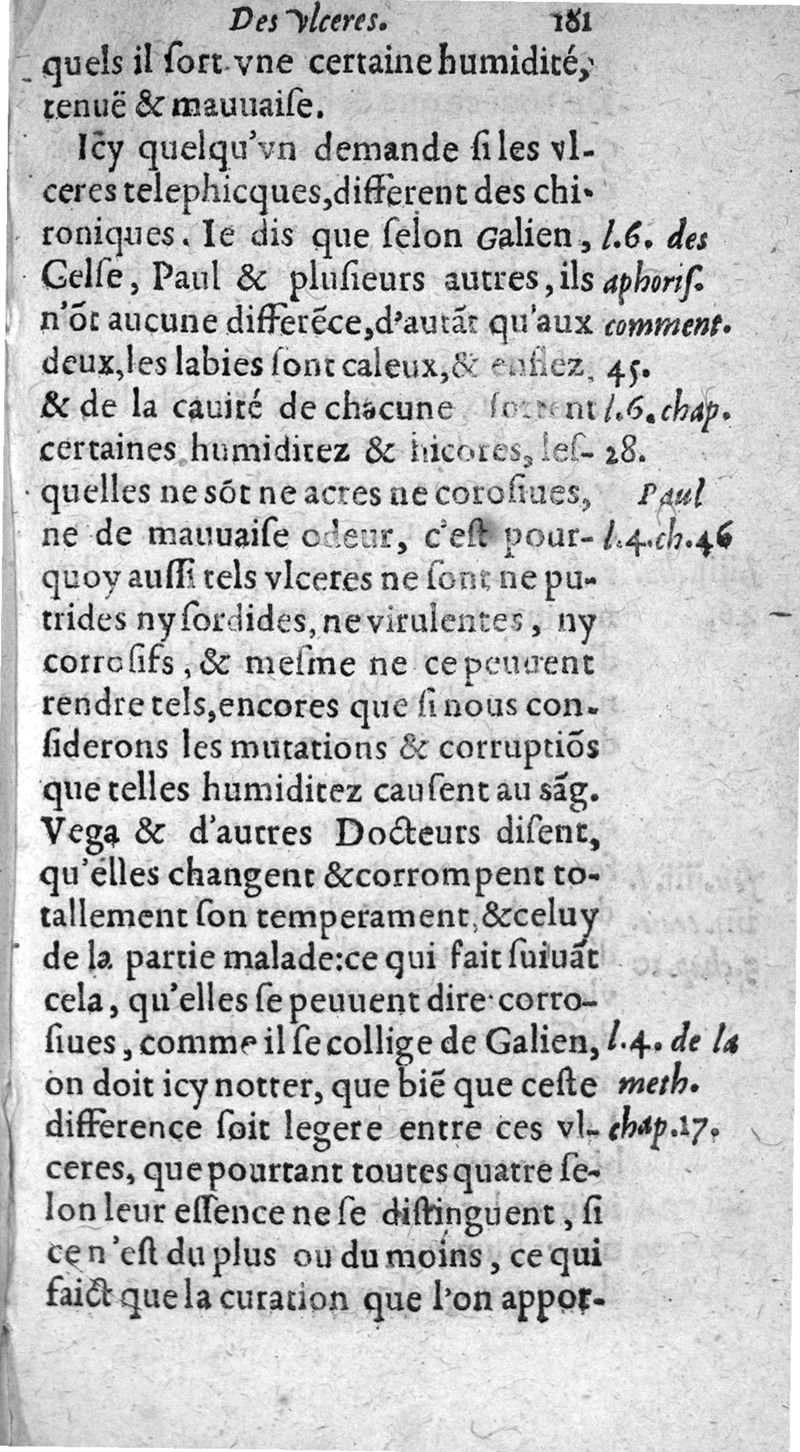 Des vlceres. 181
quels il ſort vne certaine humidité,
tenuë & mauuaiſe.
Icy quelqu'vn demande ſi les vl-
ceres telephicques, different des chi-
roniques. Ie dis que ſelon Galien, l.6. des
Celſe, Paul & pluſieurs autres, ils aphoriſ.
n'õt aucune differẽce, d'autãt qu'aux comment.
deux, les labies ſont caleux, & enflez, 45.
& de la cauité de chacune ſortent l.6. chap.
certaines humiditez & hicores, leſ- 28.
quelles ne sõt ne acres ne coroſiues, Paul
ne de mauuaiſe odeur, c'eſt pour- l.4.ch.46
quoy auſſi tels vlceres ne ſont ne pu-
trides ny ſordides, ne virulentes, ny
corroſifs, & meſme ne ce peuuent
rendre tels, encores que ſi nous con-
ſiderons les mutations & corruptiõs
que telles humiditez cauſent au sãg.
Vega & d'autres Docteurs diſent,
qu'elles changent & corrompent to-
tallement ſon temperament, & celuy
de la partie malade: ce qui fait ſuiuãt
cela, qu'elles ſe peuuent dire corro-
ſiues, comme il ſe collige de Galien, l.4. de la
on doit icy notter, que biẽ que ceſte meth.
difference ſoit legere entre ces vl- chap.17.
ceres, que pourtant toutes quatre ſe-
lon leur eſſence ne ſe diſtinguent, ſi
ce n'eſt du plus ou du moins, ce qui
faict que la curation que l'on appor-